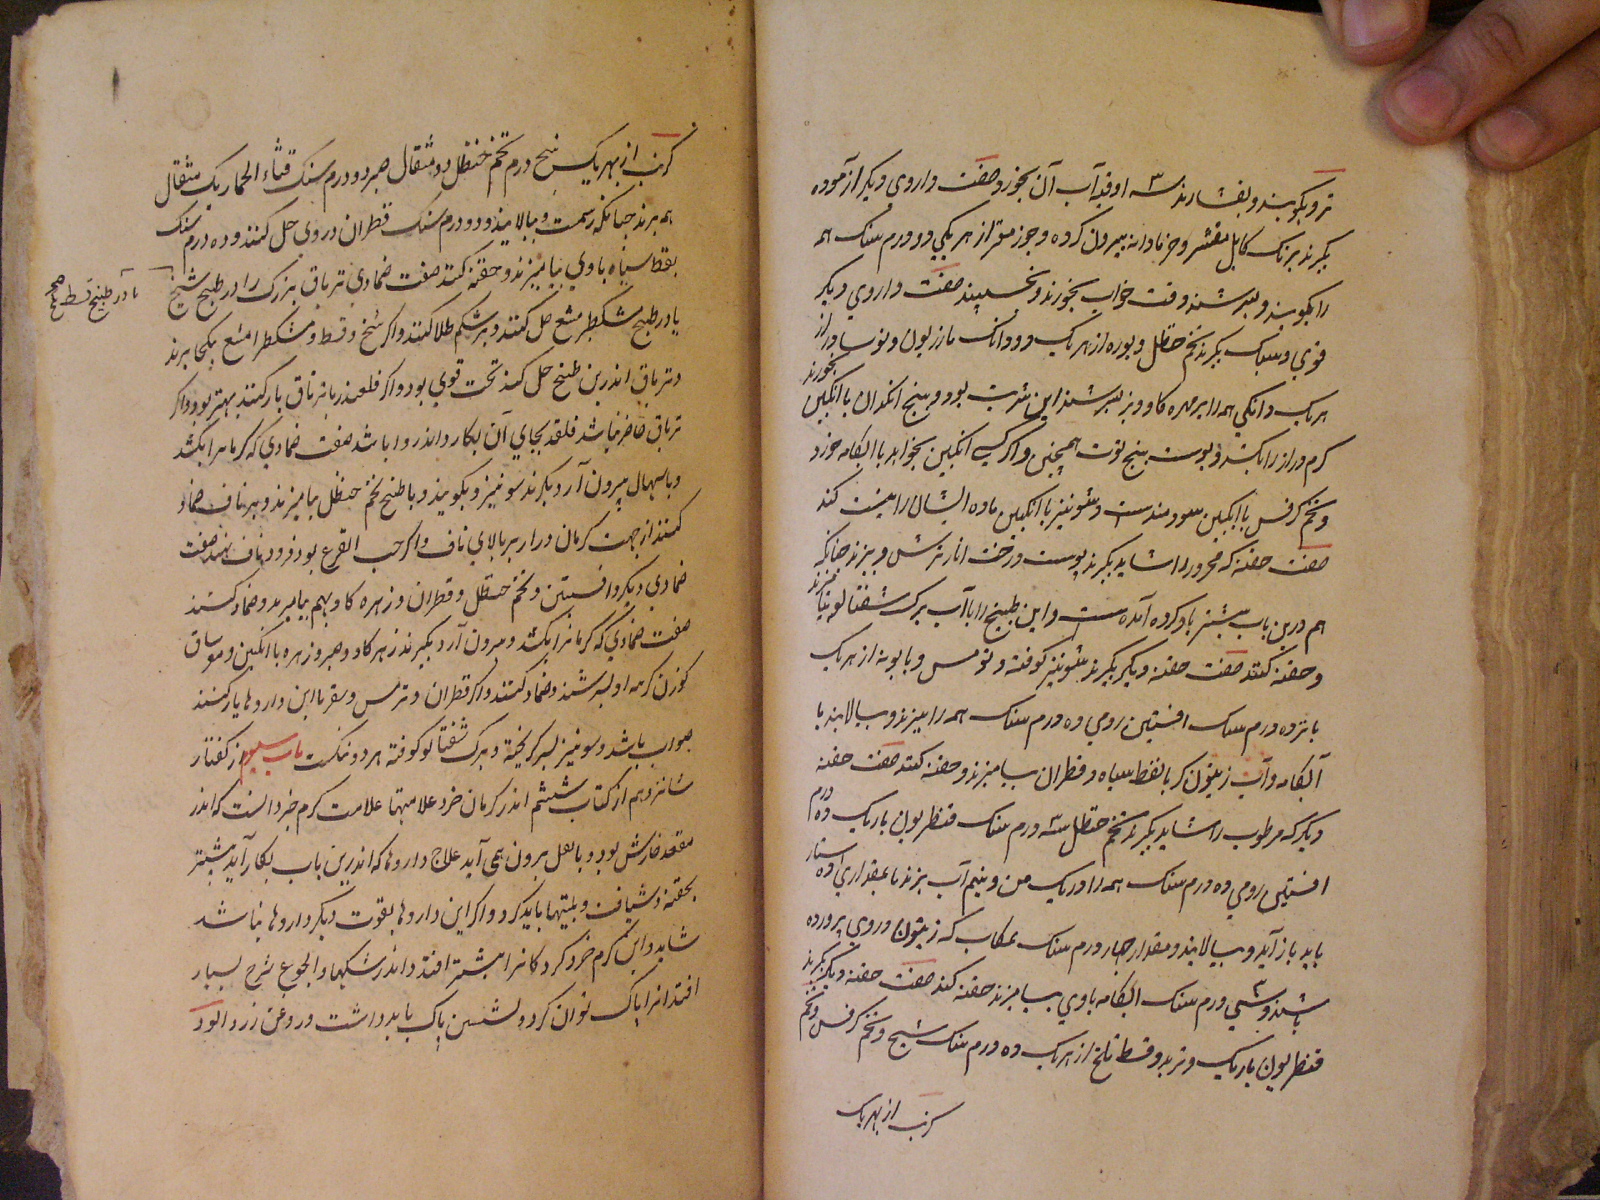 تر و بکوبند و بفشارند ۳ اوقیه آب آن بخورد صفت داروی دیکر آزموده
بکیرند برنک کابلی مقشر و جز نادانه بیرون کرده و جوز مقر از هر یکی دو درم سنک همه
را بکوبند و بسرشند وقت خواب بخورند و بخسپند صفت داروی دیکر
قوی و سبک بکیرند تخم حنظل و بوره از هر یک دو دانک مازریون و نوسادر از
هر یک دانکی همه را بزهره کاو و بسرشند این شربت بود و بیخ انکدان با انکبین بخورند
کرم دراز را بکشد و پوست بیخ توت همچنین و اکر کسی انکبین نخواهد با آبکامه خورد
و تخم کرفس با انکبین سودمندست و شونیز با انکبین ماده ایشان را نیست کند
صفت حقنه که محرور را شاید بکیرند پوست درخت انار ترش و بپزند چنانکه
هم درین باب پیشتر یاد کرده آمده ست و این طبیخ را با آب برک شفتالو بیامیزند
و حقنه کنند صفت حقنه دیکر بکیرند شونیز کوفته و ترمس و بابونه از هر یک
پانزده درم سنک افسنتین رومی ده درم سنک همه را بپزند و بپالایند با
آبکامه و آب زیتون کر با نفط سیاه و قطران بیامیزند و حقنه کنند صفت حقنه
دیکر که مرطوب را شاید بکیرند تخم حنظل سه درم سنک قنطریون باریک ده درم
افسنتین رومی ده درم سنک همه را در یک من و نیم آب بپزند تا بمقداری ده استار
باید باز آید و بپالایند و مقدار چهار درم سنک نمکاب که زیتون دروی پرورده
باشند و سی درم سنک آبکامه باوی بیامیزند حقنه کنند صفت حقنه دیکر بکیرند
قنطریون باریک و تربد و قسط تلخ از هر یک ده درم سنک شیح و تخم کرفس و تخم
کرنب از هر یک
کرنب از هر یک پنج درم تخم حنظل دو مثقال صبر دو درم سنک قثاء الحمار یک مثقال
همه بپزند چنانکه رسمت و بپالایند و دو درم سنک قطران دروی حل کنند و ده درم سنک
نفط سیاه باوی بیامیزند و حقنه کنند صفت ضمادی تریاق بزرک را در طبیخ شیح
یا در طبیخ قسط صح
یا در طبیخ مشکطرمشع حل کنند و بر شکم طلا کنند و اکر شیح و قسط و مشکطرامشع یکجا بپزند
و تریاق اندرین طبیخ حل کنند سخت قوی بود و اکر فلعندر با تریاق یار کنند بهتر بود و اکر
تریاق حاضر نباشد فلقند بجای آن بکار داند روا باشد صفت ضمادی که کرمانرا بکشد
و باسهال بیرون آرد بکیرند شونیز و بکوبند و با طبیخ تخم حنظل بیامیزند و بر ناف ضماد
کنند از جهت کرمان دراز بر بالای ناف و اکر حب القرع بود فرود ناف نهند صفت
ضمادی دیکر افسنتین و تخم حنظل و قطران و زهره کاو بهم بیامیزند و ضماد کنند
صفت ضمادی که کرمانرا بکشد و بیرون آرد بکیرند زهره کاو و صبر و زهره با انکبین و مو ساق
کوزن کرمه او بسرشند و ضماد کنند و اکر قطران و ترمس و سقرنا این داروها یار کنند
صواب باشد و شونیز بسرکه پخته و برک شفتالو کوفته هر دو نیکست باب سیوم از کفتار
شانزدهم از کتاب ششم اندر کرمان خرد علامتها علامت کرم خرد آنست که اندر
مقعد خارش بود و با ثفل بیرون همی آید علاج داروها که اندرین باب بکار آید بیشتر
بحقنه و شیاف و پلیتها باید کرد و اکر این داروها بقوت دیکر داروها نباشد
شاید و این کرم خرد کودکانرا بیشتر افتد و اندر شکمها و الجوع شرح بسیار
افتد انرا پاک توان کرد و نشستن پاک باید داشت و روغن زرد الود